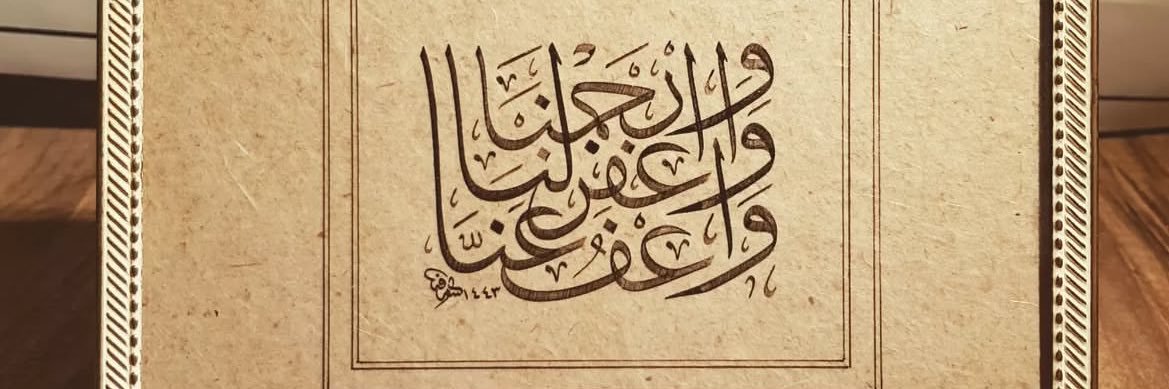 وَاعْفُ عَنَّا
وَاغْفِرْ لَنَا
وَارْحَمْنَا
١٤٤٣